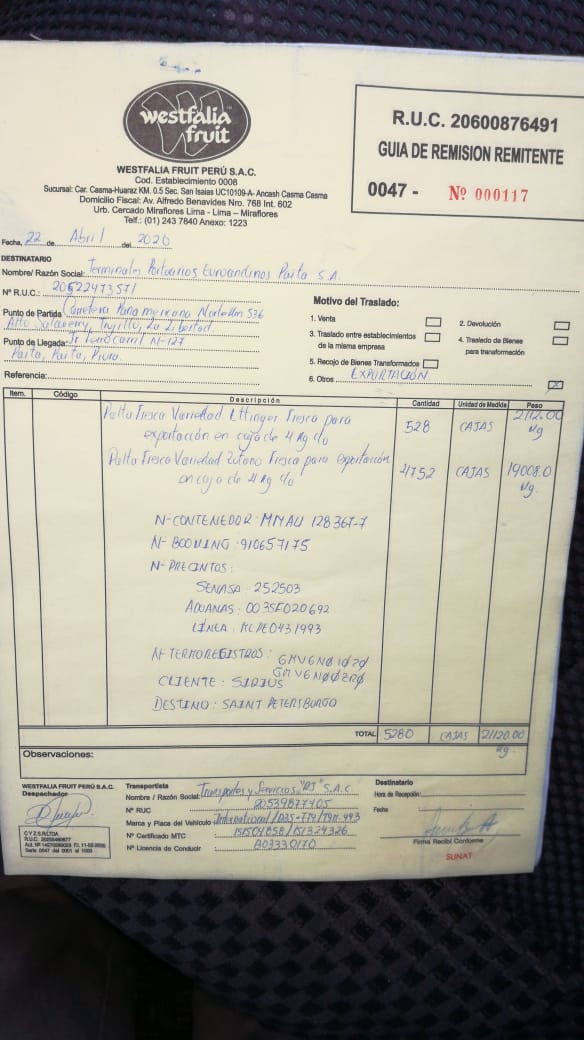 westfalia
fruit
WESTFALIA FRUIT PERÚ S.A.C.
Cod. Establecimiento 0008
Sucursal: Car. Casma-Huaraz KM. 0.5 Sec. San Isaias UC10109-A- Ancash Casma Casma
Domicilio Fiscal: Av. Alfredo Benavides Nro. 768 Int. 602
Urb. Cercado Miraflores Lima - Lima – Miraflores
Telf.: (01) 243 7840 Anexo: 1223
R.U.C. 20600876491
GUIA DE REMISION REMITENTE
0047 - Nº 000117
Fecha, 22 de Abril del 2020
DESTINATARIO
Nombre/ Razón Social: Terminales Portuarios Euroandinos Paita S.A.
Nº R.U.C.: 20522473571
Punto de Partida Carretera Panamericana Norte Km 536
Alto Salaverry, Trujillo, La Libertad.
Punto de Llegada: Jr Ferrocarril N-127
Paita, Paita, Piura.
Referencia:
Motivo del Traslado:
1. Venta
2. Devolución
3. Traslado entre establecimientos
de la misma empresa
4. Traslado de Bienes
para transformación
5. Recojo de Bienes Transformados
6. Otros EXPORTACIÓN X
Item. Código Descripción Cantidad Unidad de Medida Peso
Palta Fresca Variedad Ettinger Fresca para
exportacción en caja de 4 Kg c/u 528 CAJAS 2112.00 Kg
Palta Fresca Variedad Zutano Fresca para exportacción
en caja de 4 Kg c/u 4752 CAJAS 19008.0 Kg.
N-CONTENEDOR: MNAU 128367-7
N- BOOKING: 910657175
N- PRECINTOS:
SENASA: 252503
ADUANAS: 003SF020692
LÍNEA: MLPE0431993
N- TERMOREGISTROS: GMV6N01070
GMV6N002R0
CLIENTE: SIRIUS
DESTINO: SAINT PETERSBURGO
TOTAL 5280 CAJAS 21120.00 Kg.
Observaciones:
WESTFALIA FRUIT PERÚ S.A.C.
Despachador
Transportista
Nombre / Razón Social: Transportes y Servicios "RJ" S.A.C
Nº RUC 20539877405
Marca y Placa del Vehículo International /
Nº Certificado MTC 151504858/151324326
Nº Licencia de Conducir A03330170
Destinatario
Hora de Recepción:
Fecha
Firma Recibí Conforme
SUNAT
Serie 0047 del 0001 al 1000